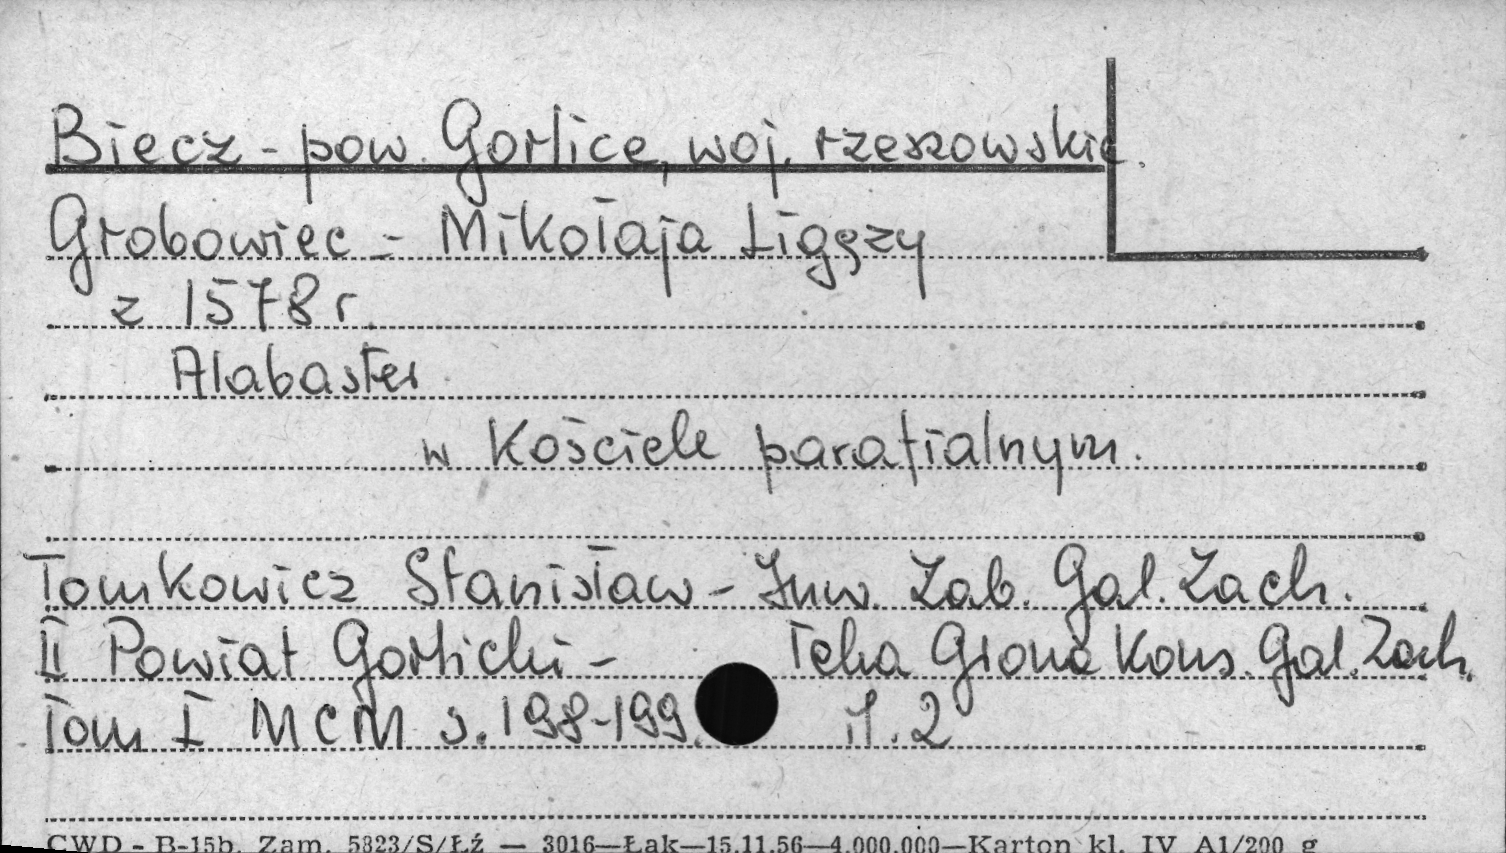 Biecz - pow. Gorlice, woj. rzeszowskie.
Grobowiec - Mikołaja Ligęzy
z 1578 r.
Alabaster
w Kościele parafialnym.
Tomkowicz Stanisław - Inw. Zab. Gal. Zach.
II Powiat Gorlicki - Teka Grona Kons. Gal. Zach.
Tom I MCM s. 198-199. il. 2
CWD - B-15b. Zam. 5323/S/Łź — 3016—Łąk—15.11.56—4.000.000—Karton kl. IV A1/200 g